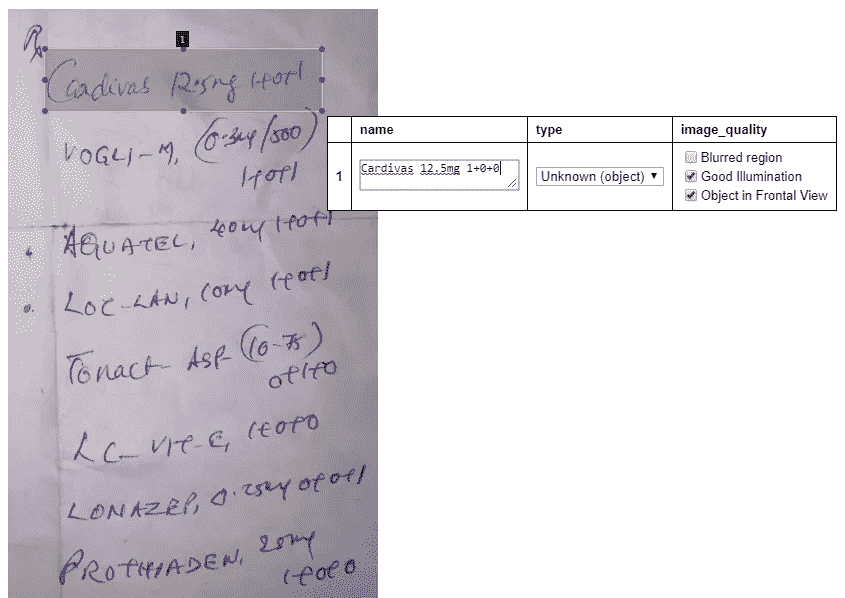 Rx
1
Cardivas 12.5mg 1+0+1
VOGLI-M, (0.3mg/500)
1+0+1
AQUATEL, 40mg 1+0+1
LOC-LAN, 10mg 1+0+1
Tonact ASP (10-75)
0+1+0
LC-VIT-E, 1+0+0
LONAZEP, 0.25mg 0+0+1
PROTHIADEN, 25mg
1+0+0
name type image_quality
1 Cardivas 12.5mg 1+0+0 Unknown (object) Blurred region
Good Illumination
Object in Frontal View